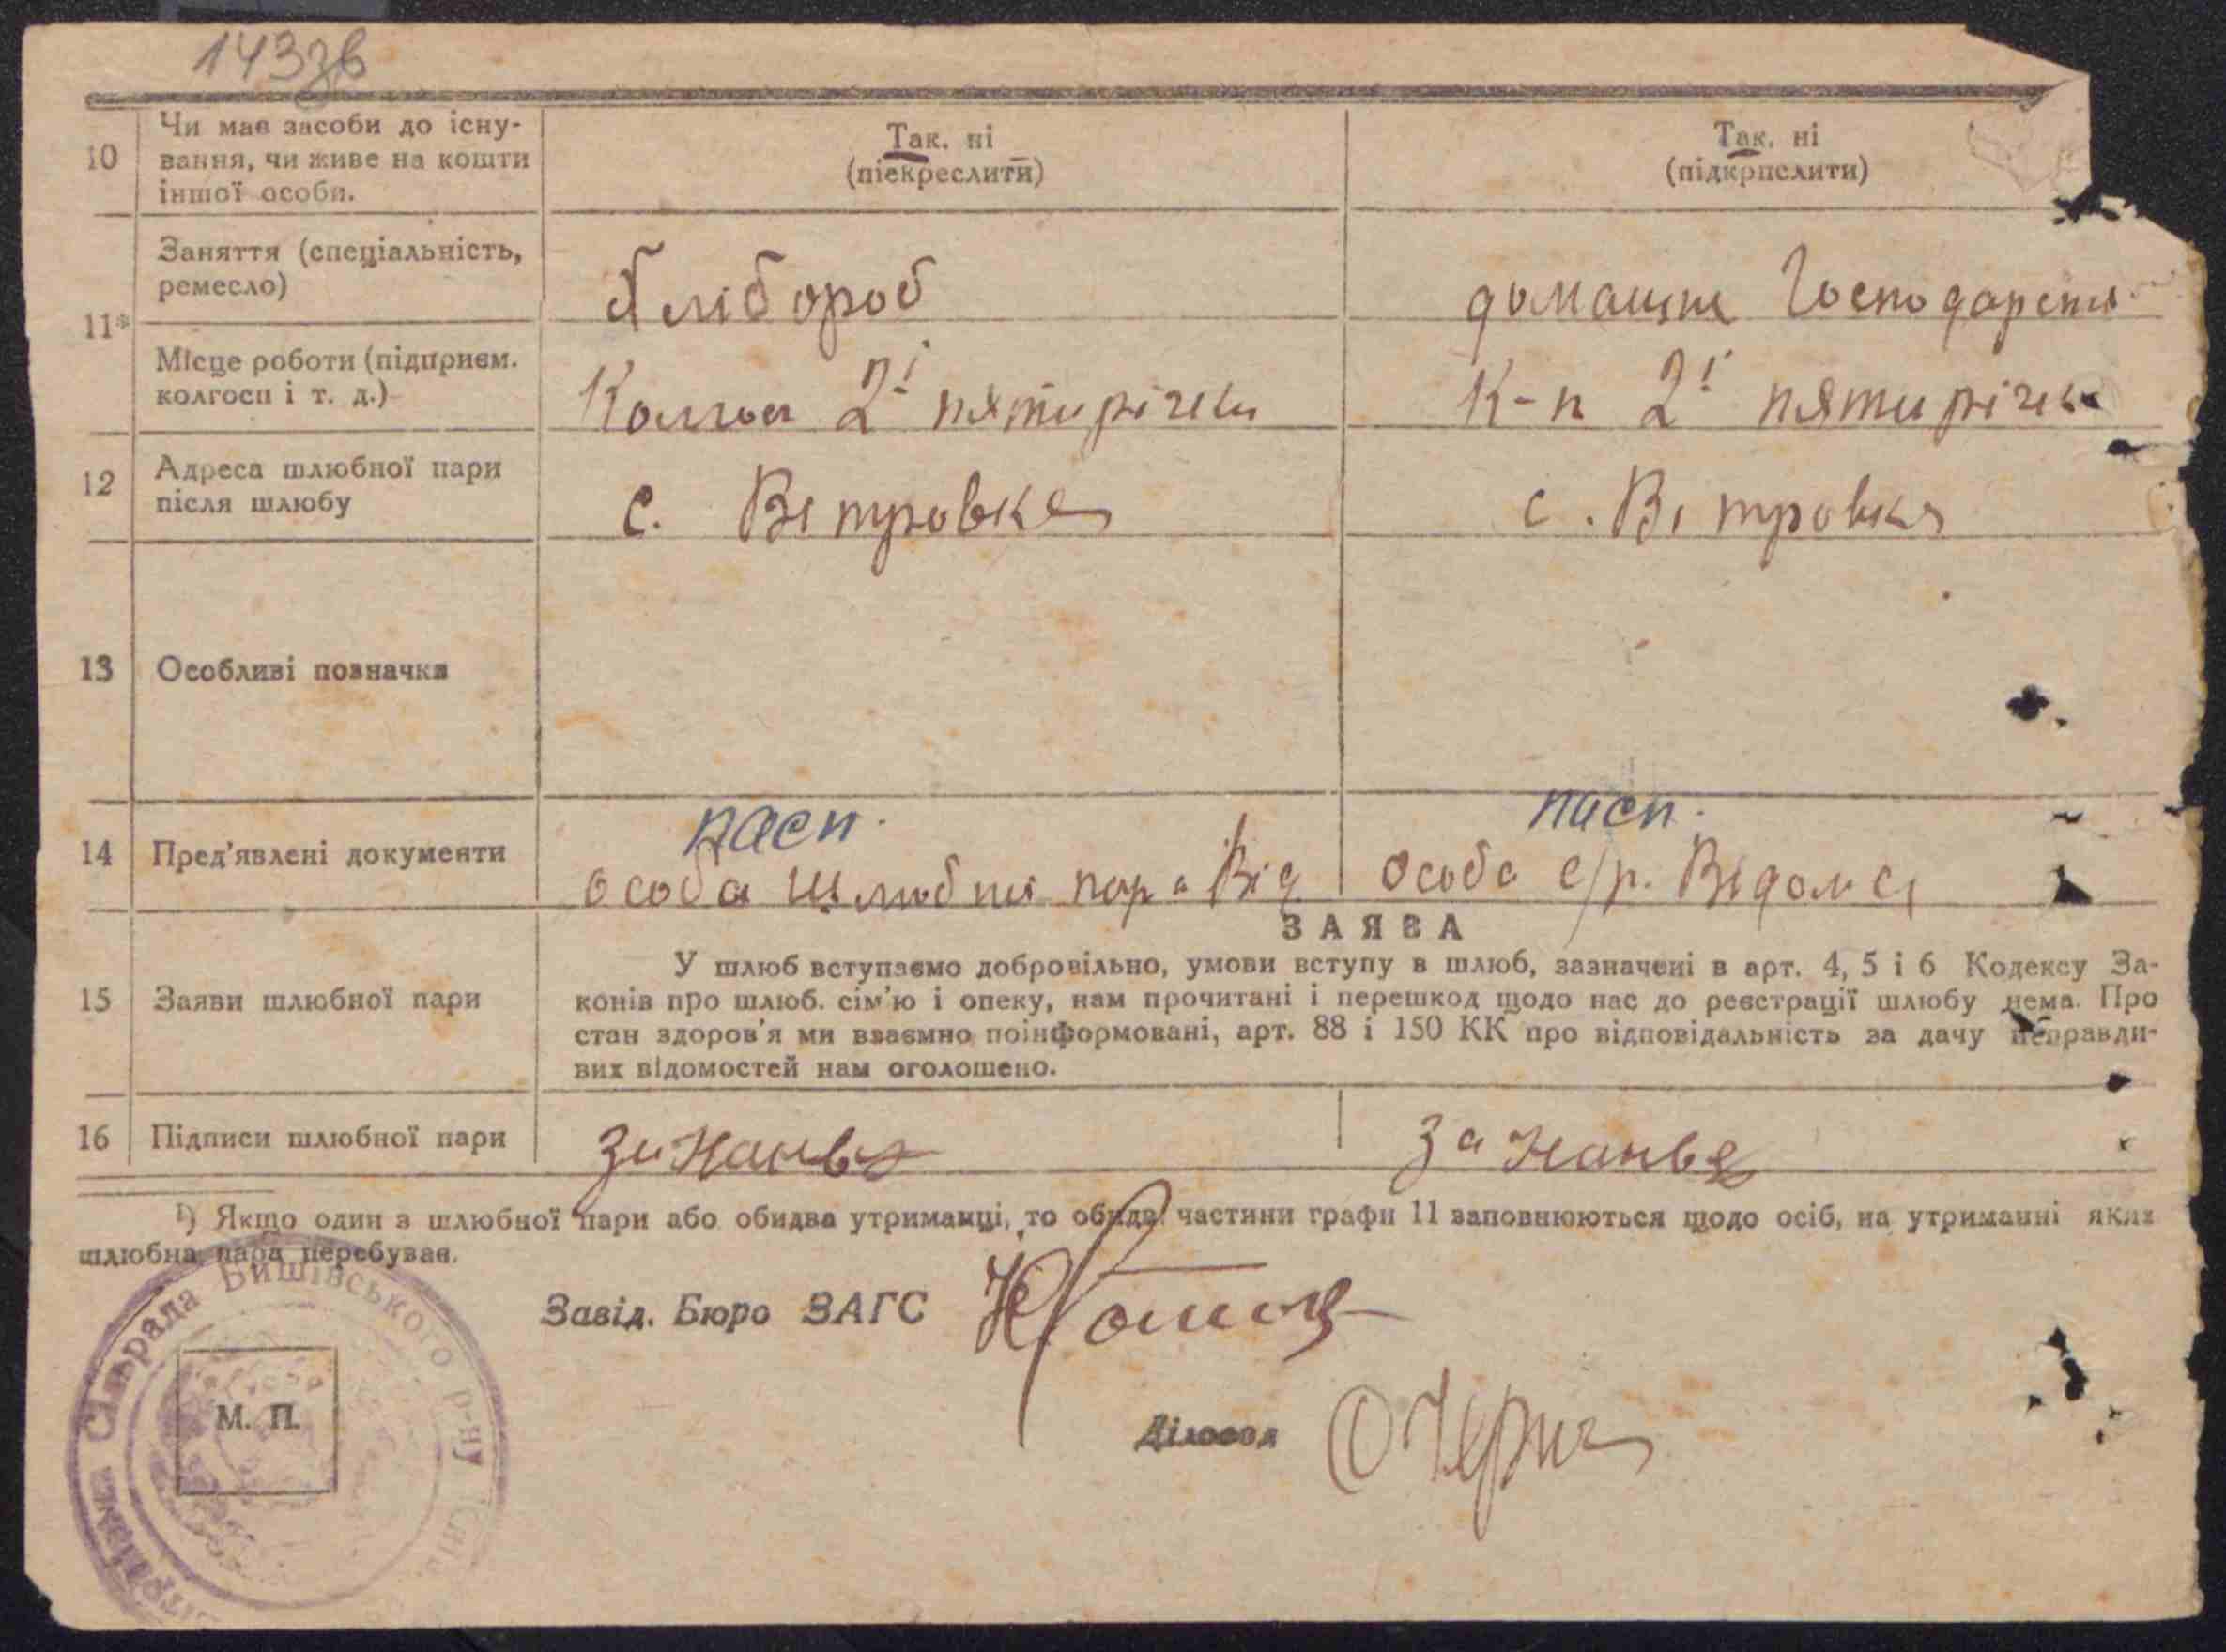 143зв
10
Чи має засоби до існу-
вання, чи живе на кошти
іншої особи.
Так. ні
(піекреслити)
Так. ні
(підкрпслити)
11*
Заняття (спеціальність,
ремесло)
хлібороб
домашнє господарств
Місце роботи (підприєм.
колгосп і т. д.)
Колгосп 2ї пятирічки
К-п 2ї пятирічки
12
Адреса шлюбної пари
після шлюбу
с. Вітровка
с. Вітровка
13
Особливі позначки
14
Пред'явлені документи
пасп.
особа шлюбні пара Від
пасп.
особа с/р. Відомсі
15
Заяви шлюбної пари
ЗАЯВА
У шлюб вступаємо добровільно, умови вступу в шлюб, зазначені в арт. 4, 5 і 6 Кодексу За-
конів про шлюб. сім'ю і опеку, нам прочитані і перешкод щодо нас до реєстрації шлюбу нема. Про
стан здоров'я ми взаємно поінформовані, арт. 88 і 150 КК про відповідальність за дачу неправди-
вих відомостей нам оголошено.
16
Підписи шлюбної пари
¹) Якщо один з шлюбної пари або обидва утриманці, то обидві частини графи 11 заповнюються щодо осіб, на утриманні яких
шлюбна пара перебуває.
Завід. Бюро ЗАГС
Діловод
М. П.
Сільрада Бишівського р-ну